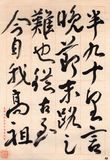 半九十里言
晚節末路之
難也從古
今自我高祖